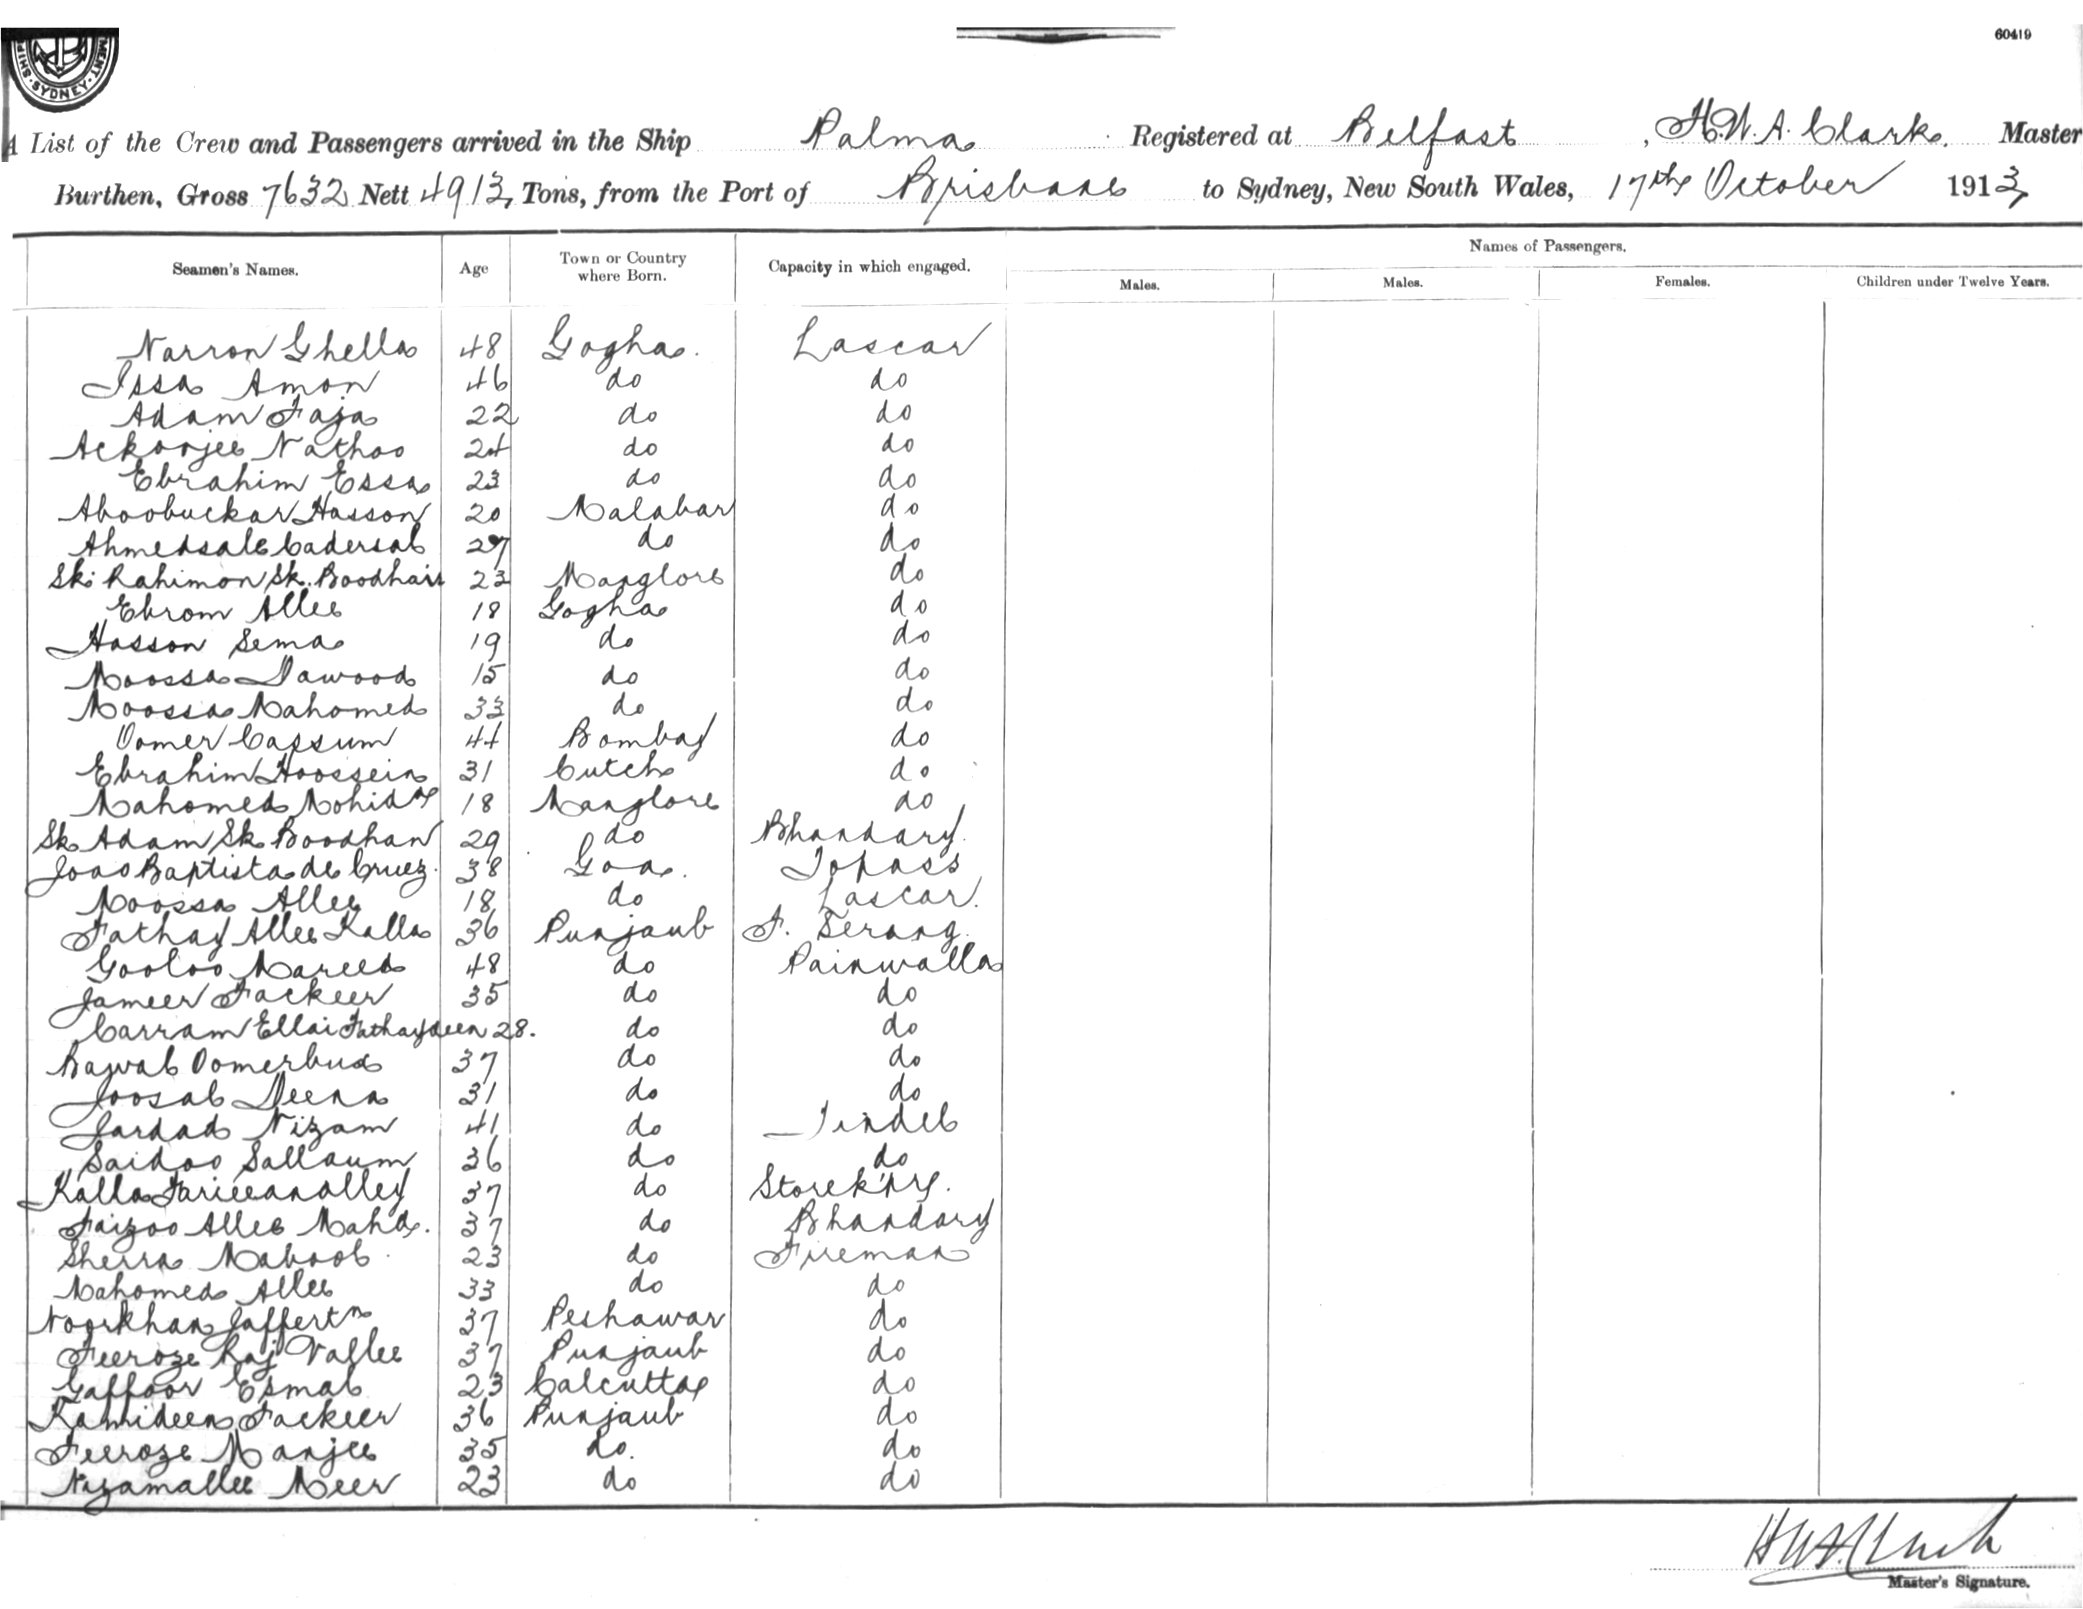 MENT · SYDNEY · SHIP
60419
A List of the Crew and Passengers arrived in the Ship Palma Registered at Belfast, H.W.A. Clark. Master
Burthen, Gross 7632 Nett 4913, Tons, from the Port of Brisbane to Sydney, New South Wales, 17th October 1913,
Seamen's Names. Age Town or Country where Born. Capacity in which engaged. Names of Passengers.
Males. Males. Females. Children under Twelve Years.
Narron Ghella 48 Gogha. Lascar
Issa Amon 46 do do
Adam Faja 22 do do
Ackoojee Nathoo 24 do do
Ebrahim Essa 23 do do
Aboobuckar Hasson 20 Malabar do
Ahmedsale Cadersab 27 do do
Sk: Rahimon Sk. Boodhan 23 Manglore do
Ebrom Allee 18 Gogha do
Hasson Sema 19 do do
Moossa Dawood 15 do do
Moossa Mahomed 33 do do
Oomer Cassum 44 Bombay do
Ebrahim Hoossein 31 Cutch do
Mahomed Mohidn 18 Manglore do
Sk Adam Sk Boodhan 29 do Bhandary.
Joao Baptista de Cruez. 38 Goa. Topass
Moossa Allee 18 do Lascar.
Fathay Allee Kalla 36 Punjaub F. Serang.
Gooloo Mareed 48 do Painwalla
Jameer Fackeer 35 do do
Carram Ellai Fathaydeen 28. do do
Rajwab Oomerbux 37 do do
Joosab Deena 31 do do
Jardad Nizam 41 do Tindel
Saidoo Sallaum 36 do do
Kalla 37 do Storek'pr.
Faizoo Allee Mahd. 37 do Bhandary
Sherra Maboob 23 do Fireman
Mahomed Allee 33 do do
Noorkhan Jaffertn 37 Peshawar do
Feeroze Raj Vallee 37 Punjaub do
Gaffoor Esmal 23 Calcutta do
Kamideen Fackeer 36 Punjaub do
Feeroze Manjee 35 do. do
Nizamallee Meer 23 do do
HWAClark
Master's Signature.